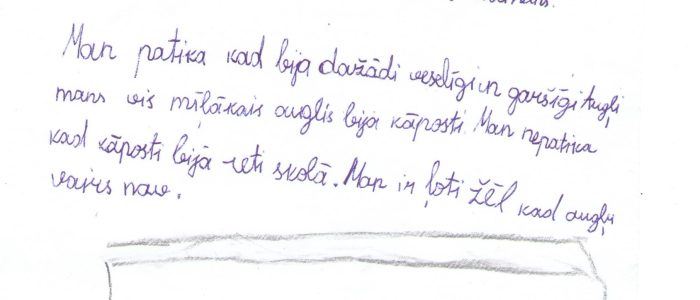 Man patika kad bija dažādi veselīgi un garšīgi augļi
mans vis mīļākais auglis bija kāposti. Man nepatika
kad kāposti bijā reti skolā. Man ir ļoti žēl kad augļu
vairs nav.